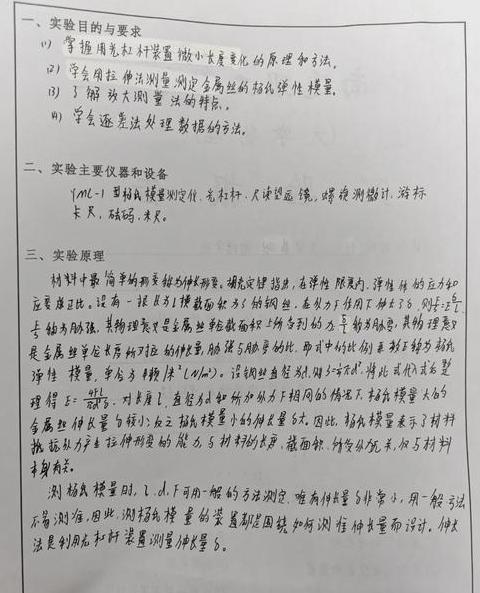 一、实验目的与要求
(1) 掌握用光杠杆装置微小长度变化的原理和方法。
(2) 学会用拉伸法测量测定金属丝的杨氏弹性模量。
(3) 了解放大测量法的特点。
(4) 学会逐差法处理数据的方法。
二、实验主要仪器和设备
YMC-1型杨氏模量测定仪、光杠杆、尺读望远镜、螺旋测微计、游标
卡尺、砝码、米尺。
三、实验原理
材料中最简单的形变称为伸长形变。胡克定律指出,在弹性限度内,弹性体的应力和
应变成正比。设有一根长为l横截面积为S的钢丝,在外力F作用下伸长了δ,则F/S=E δ/L
F/S称为胁强,其物理意义是金属丝单位截面积上所受到的力 δ/L称为胁变,其物理意义
是金属丝单位长度所对应的伸长量,胁强与胁变的比,即式中的比例系数E称为杨氏
弹性模量,单位为牛顿/米²(N/m²)。设钢丝直径为d,则S=¼πd²,将此式代入式①整
理得 E=4FL/πd²δ,对长度l,直径为d和所加外力F相同的情况下,杨氏模量大的
金属丝伸长量δ较小;反之杨氏模量小的伸长量δ大。因此,杨氏模量表示了材料
抵抗外力产生拉伸形变的能力,与材料的长度、截面积、所受外力无关,仅与材料
本身有关。
测杨氏模量时,l、d、F可用一般的方法测定,唯有伸长量δ非常小,用一般方法
不易测准,因此,测杨氏模量的装置都是围绕如何测准伸长量而设计。伸长
法是利用光杠杆装置测量伸长量δ。